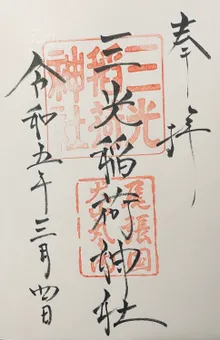 奉拝
三光稲荷神社
令和五年三月四日
三光
稲荷
神社
尾張国
犬山城